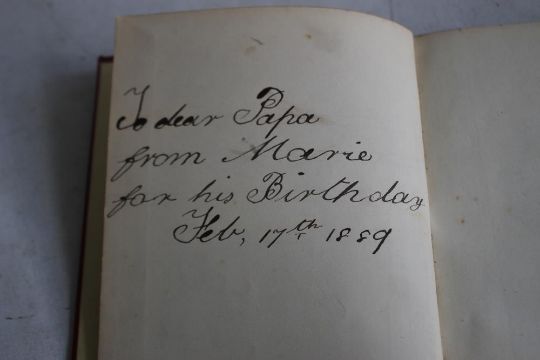 To dear Papa
from Marie
for his Birthday
Feb, 17th 1889